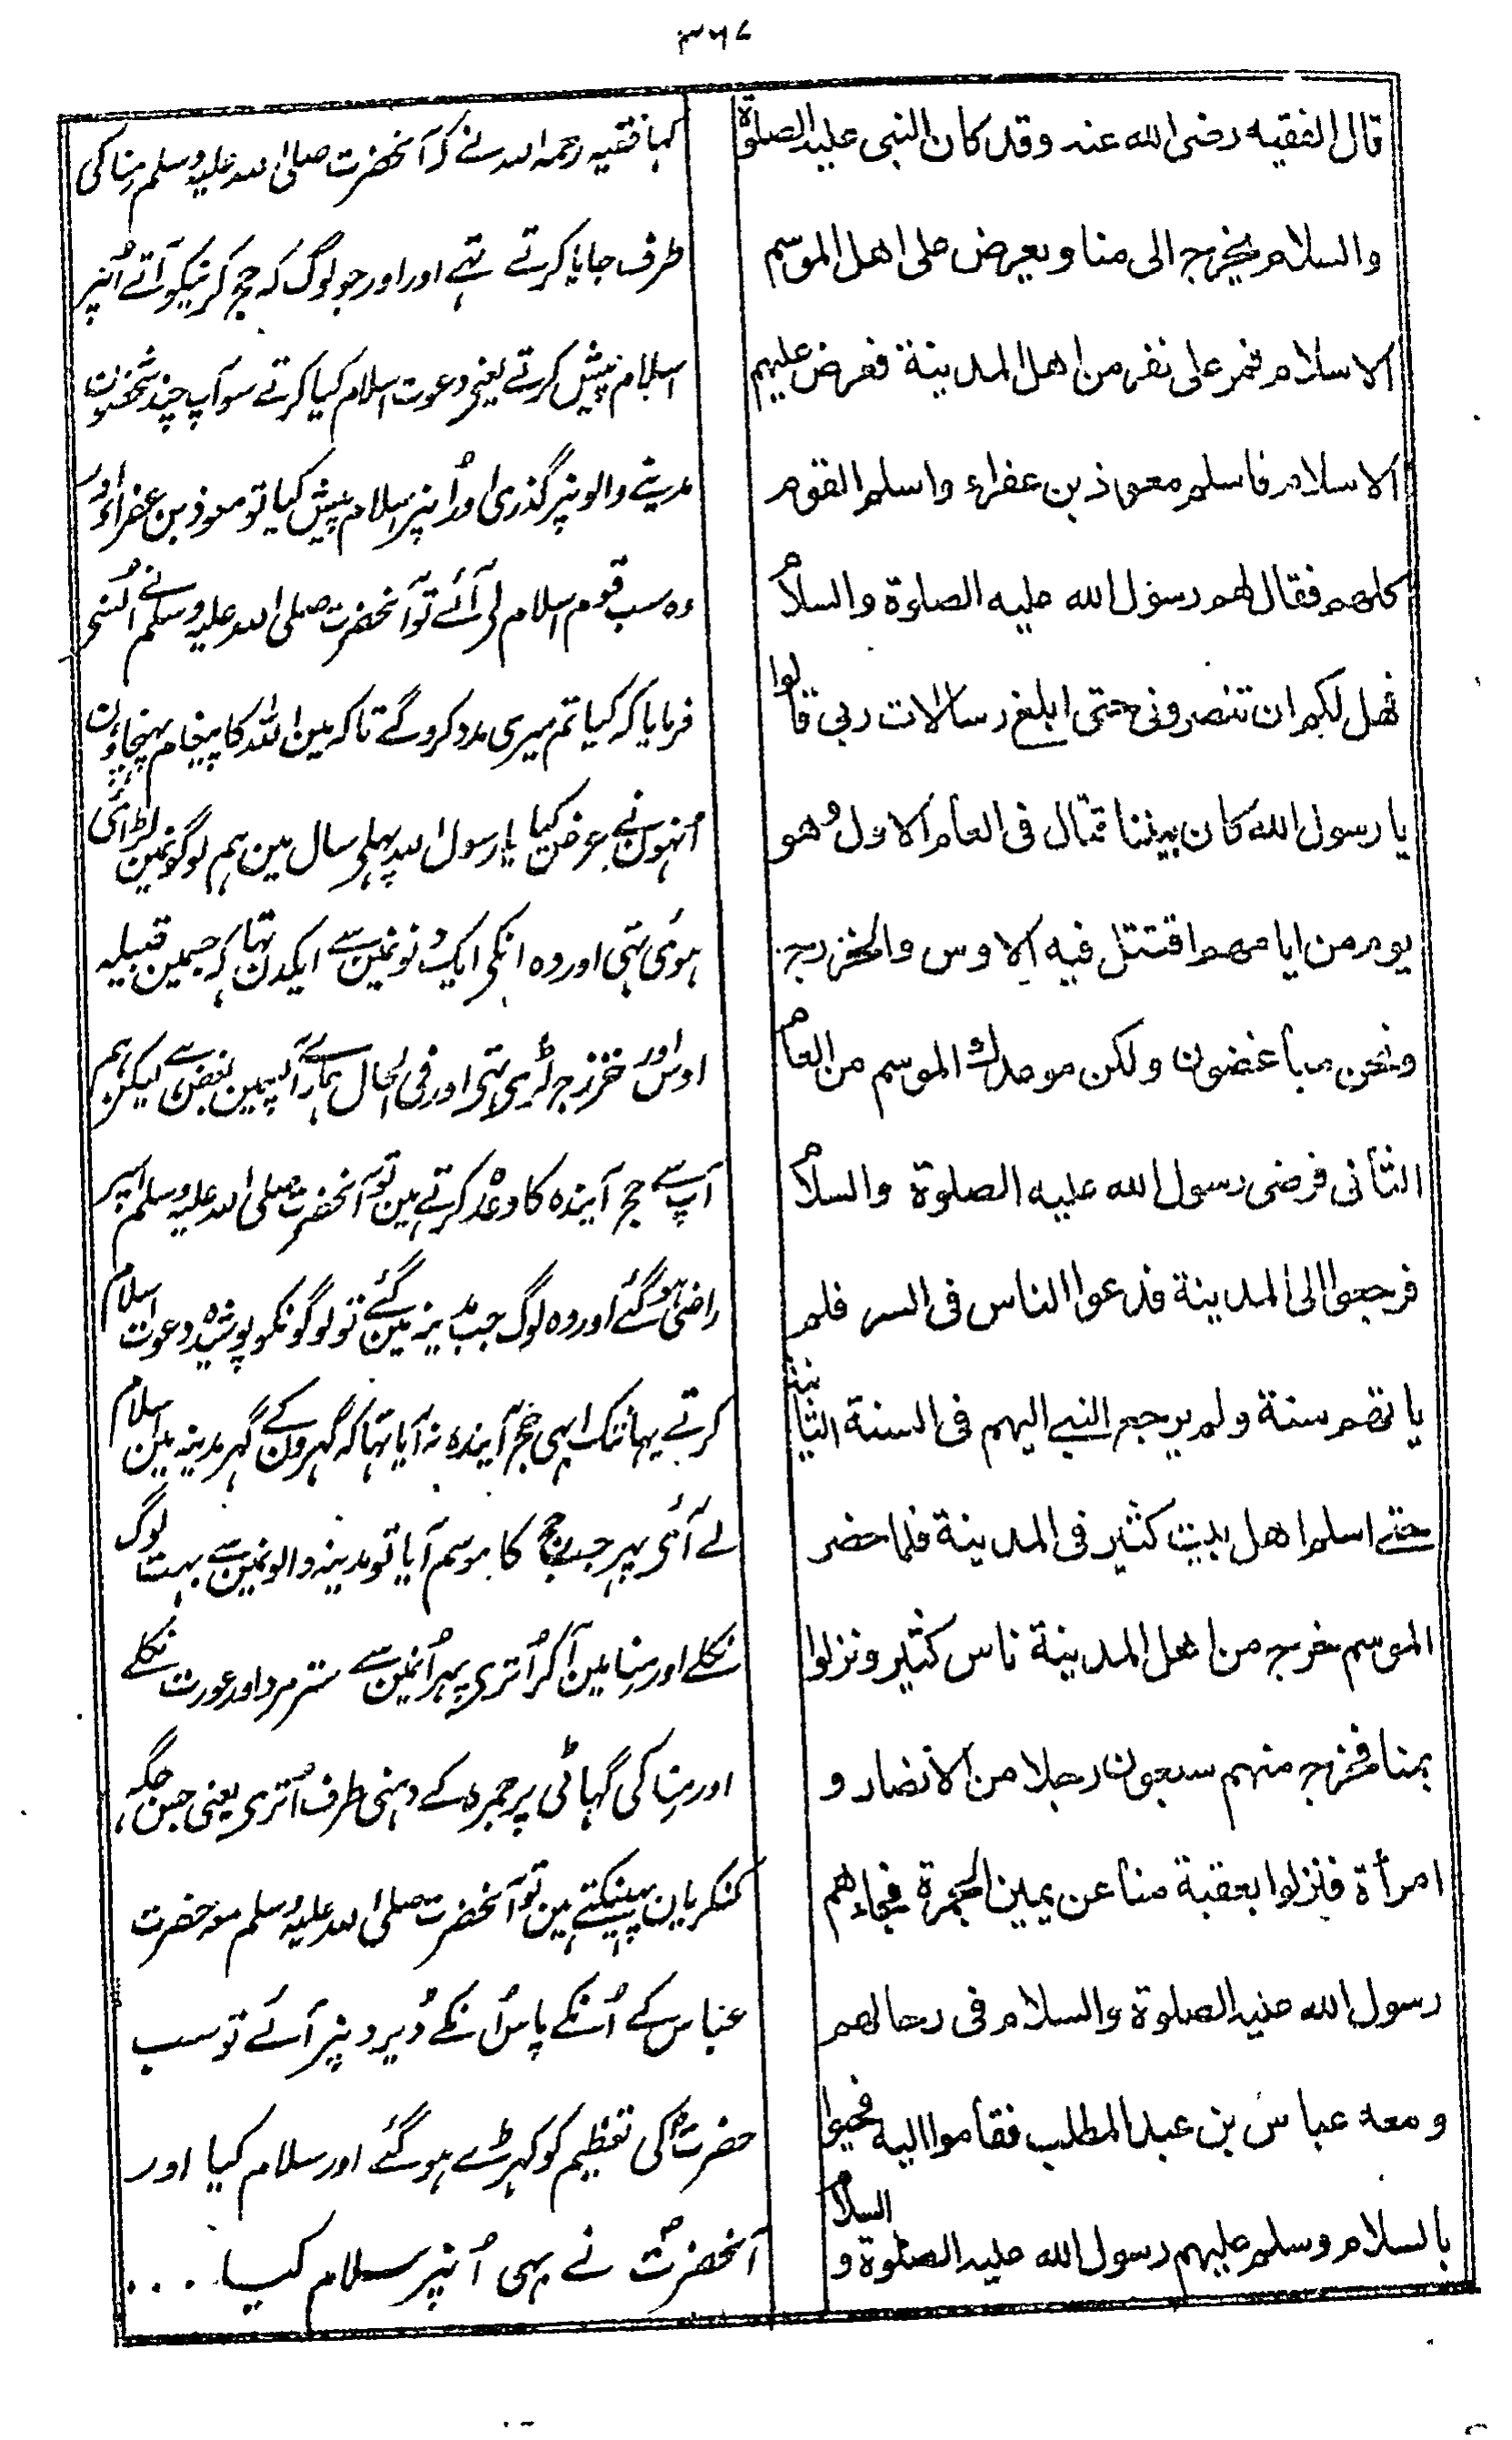 ٣٦٧
قال الفقيه رضى الله عنه وقد كان النبى عليه الصلوة
والسلام يخرج الى منا ويعرض على اهل الموسم
الاسلام فمر على نفر من اهل المدينة فعرض عليهم
الاسلام فاسلم معوذ بن عفراء واسلم القوم
كلهم فقال لهم رسول الله عليه الصلوة والسلام
فهل لكم ان تنصرونى حتى ابلغ رسالات ربى قالوا
يا رسول الله كان بيننا قتال فى العام الاول وهو
يوم من ايامهم اقتتل فيه الاوس والخزرج
ونحن متباغضون ولكن موعدك الموسم من العام
الثانى فرضى رسول الله عليه الصلوة والسلام
فرجعوا الى المدينة فدعوا الناس فى السر فلم
يا تهم سنة ولم يرجع النبى اليهم فى السنة الثانية
حتى اسلم اهل بيت كثير فى المدينة فلما حضر
الموسم خرج من اهل المدينة ناس كثير ونزلوا
بمنا فخرج منهم سبعون رجلا من الانصار و
امرأة فنزلوا بعقبة منا عن يمين الجمرة فجاءهم
رسول الله عليه الصلوة والسلام فى رحالهم
ومعه عباس بن عبد المطلب فقاموا اليه فحيوا
بالسلام وسلم عليهم رسول الله عليه الصلوة والسلام
کہا فقیہ رحمہ اللہ نے کہ آنحضرت صلی اللہ علیہ وسلم منا کی
طرف جایا کرتے تہے اور اور جو لوگ کہ حج کرنیکو آتے اُنپر
اسلام پیش کرتے یعنی دعوت اسلام کیا کرتے سو آپ چند شخصون
مدینے والونپر گذری اور اُنپر اسلام پیش کیا تو معوذ بن عفراء اور
وہ سب قوم اسلام لے آئے تو آنحضرت صلی اللہ علیہ وسلم نے اُنسے
فرمایا کہ کیا تم میری مدد کروگے تاکہ مین اللہ کا پیغام پہنچاؤن
اُنہون نے عرض کیا یا رسول اللہ پہلے سال مین ہم لوگونمین لڑائی
ہوئی تہی اور وہ انکی ایک دنونمین سے ایکدن تہا کہ جسمین قبیلہ
اوس اور خزرج لڑی تہی اور فی الحال ہمارے آپسمین بغض ہے لیکن ہم
آپ سے حج آیندہ کا وعدہ کرتے ہین تو آنحضرت صلی اللہ علیہ وسلم اسپر
راضی ہوگئے اور وہ لوگ جب مدینہ مین گئے تو لوگونکو پوشیدہ دعوت اسلام
کرتے یہانتک ابہی حج آیندہ نہ آیا تہا کہ گہرون کے گہر مدینہ مین اسلام
لے آئی پہر جب حج کا موسم آیا تو مدینہ والونمین سے بہت لوگ
نکلے اور منا مین آکر اُتری پہر اُنمین سے ستر مرد اور عورت نکلے
اور منا کی گہاٹی پر جمرہ کے دہنی طرف اُتری یعنی جس جگہ
کنکریان پہینکتے ہین تو آنحضرت صلی اللہ علیہ وسلم معہ حضرت
عباس کے اُنکے پاس اُنکے ڈیرونپر آئے تو سب
حضرت کی تعظیم کو کہڑے ہوگئے اور سلام کیا اور
آنحضرت نے بہی اُنپر سلام کیا ...